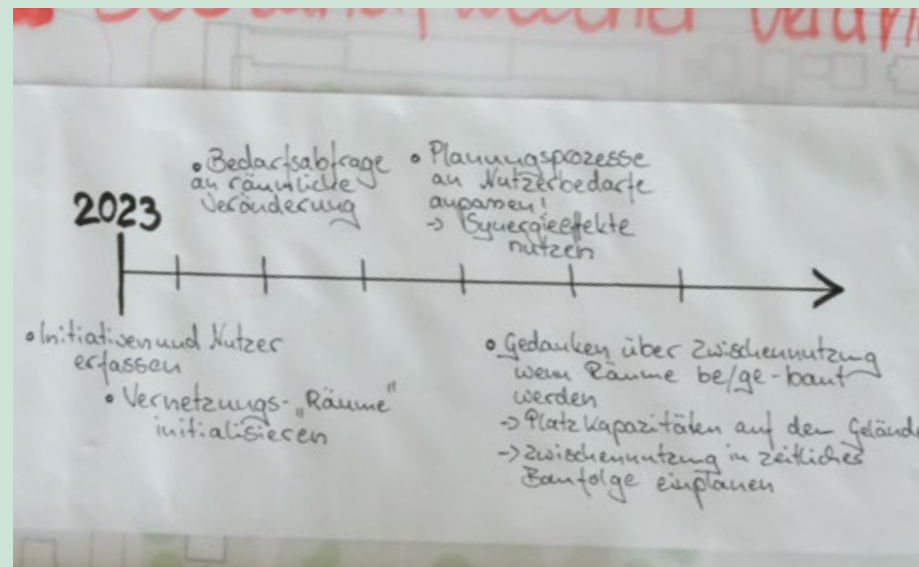 2023
• Bedarfsabfrage
an räumliche
Veränderung
• Planungsprozesse
an Nutzerbedarfe
anpassen!
-> Synergieeffekte
nutzen
• Initiativen und Nutzer
erfassen
• Vernetzungs-„Räume"
initialisieren
• Gedanken über Zwischennutzung
wenn Räume be/ge-baut
werden
-> Platzkapazitäten auf dem Gelände
-> Zwischennutzung in zeitliches
Baufolge einplanen